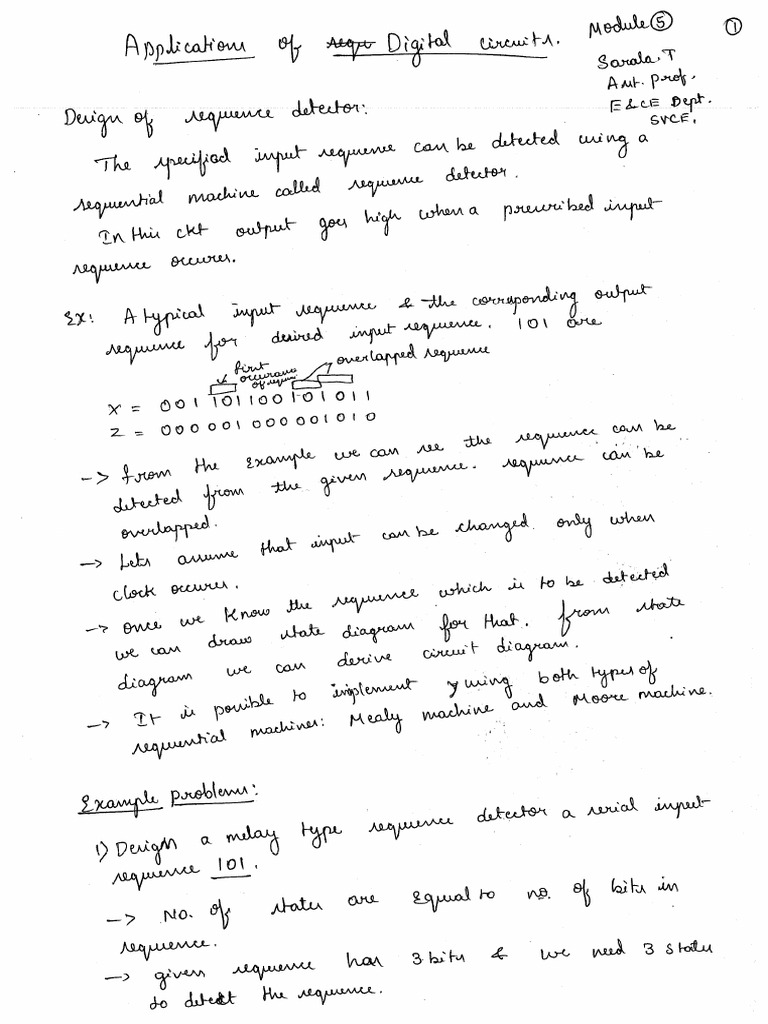 Module ⑤ ①
Applications of Digital circuits.
Sarala.T
Asst. Prof.
E&CE Dept.
SVCE.
Design of sequence detector:
The specified input sequence can be detected using a
sequential machine called sequence detector.
In this ckt output goes high when a prescribed input
sequence occures.
Ex: A typical input sequence & the corresponding output
sequence for desired input sequence. 101 are
first
occurance
of sequence
overlapped sequence
X = 001 101100101011
Z = 000001000001010
-> from the example we can see the sequence can be
detected from the given sequence. sequence can be
overlapped.
-> Lets assume that input can be changed only when
clock occures.
-> once we know the sequence which is to be detected
we can draw state diagram for that. from state
diagram we can derive circuit diagram.
-> It is possible to implement using both types of
sequential machines: Mealy machine and Moore machine.
Example problems:
1) Design a melay type sequence detector a serial input
sequence 101.
-> No. of states are equal to no. of bits in
sequence.
-> given sequence has 3 bits & we need 3 states
to detect the sequence.